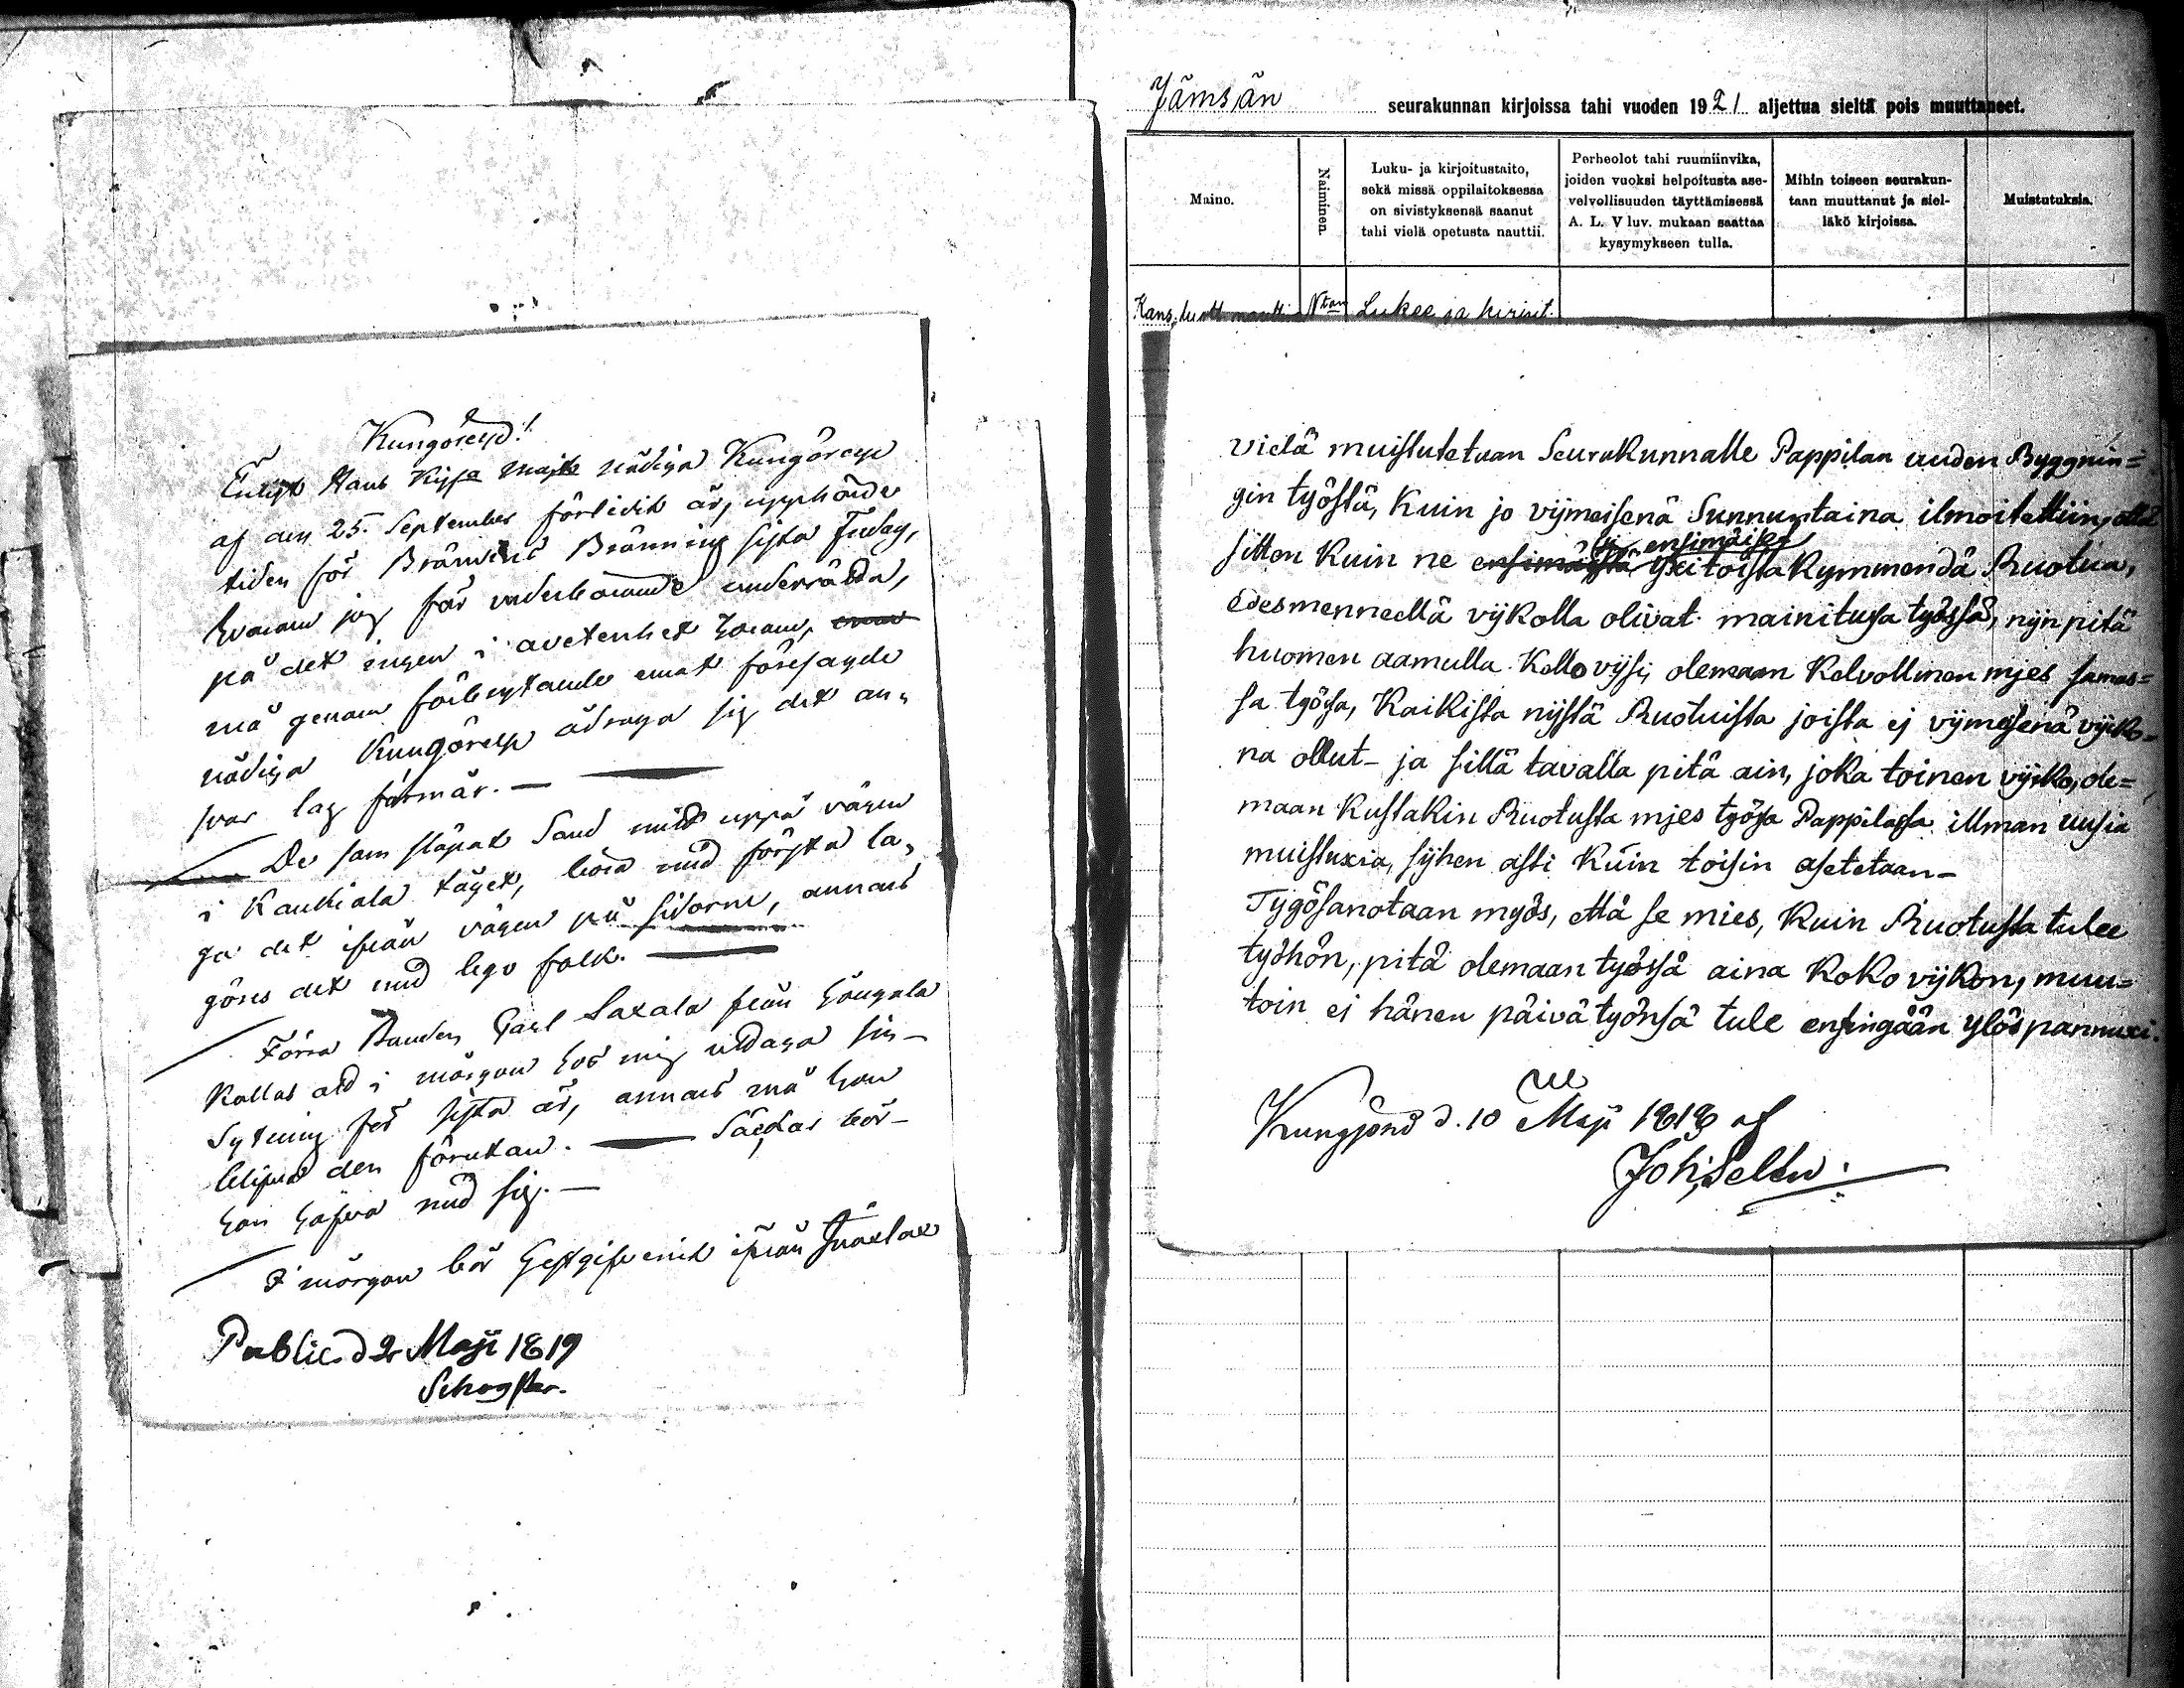 Kungörelse!
Enligt Hans Kejse Majts nådiga Kungörelse
af den 25. September förledit år, upphörde
tiden för Brännvins Bränning sista Fredag,
hvarom jag får vederbörande underrätta,
på det ingen i ovetenhet härom,
må genom förbrytande emot föresagde
nådiga Kungörelse ådraga sig det an-
svar lag förmår. —
De som släpat Sand midt uppå vägen
i Kaukiala tåget, böra med första la-
ga det ifrån vägen på sidorne, annars
göres det med lego folk. —
Förra Bonden Carl Saxala från
Kallas at i morgon hos mig uttaga sin
Sytning för sista år, annars må han
blifva den förutan. — Säckar bör
han hafva med sig. —
I morgon bör Gestgifveriet ifrån
Public. d 2 Maji 1819
Jämsän seurakunnan kirjoissa tahi vuoden 1921 aljettua sieltä pois muuttaneet.
Maine.
Naiminen.
Luku- ja kirjoitustaito,
sekä missä oppilaitoksessa
on sivistyksensä saanut
tahi vielä opetusta nauttii.
Perheolot tahi ruumiinvika,
joiden vuoksi helpoitusta ase-
velvollisuuden täyttämisessä
A. L. V luv. mukaan saattaa
kysymykseen tulla.
Mihin toiseen seurakun-
taan muuttanut ja siel-
läkö kirjoissa.
Muistutuksia.
Ntön Lukee ja kirjoit.
vielä muistutetaan Seurakunnalle Pappilan uuden Byggnin=
gin työstä, Kuin jo vijmeisenä Sunnuntaina ilmoitettiin, että
sitten Kuin ne ensimäiset yxitoistakymmendä Ruotua,
edesmenneellä vijkolla olivat mainitusa työssä, nijn pitä
huomen aamulla Kello vijsi olemaan Kelvollinen mjes samas=
sa työsa, Kaikista nijstä Ruotuista joista ej vijmeisenä vijko=
na ollut - ja sillä tavalla pitä ain, joka toinen vijkko, ole=
maan Kustakin Ruotusta mjes työsä Pappilassa illman uusia
muistuxia, sijhen asti Kuin toisin asetetaan -
Tygösanotaan myös, että se mies, Kuin Ruotusta tulee
työhön, pitä olemaan työssä aina Koko vijkon, muu=
toin ei hänen päivätyönsä tule ensingään ylöspannuxi.
Kungjord d. 10 Maji 1818 af
Joh: Selin.